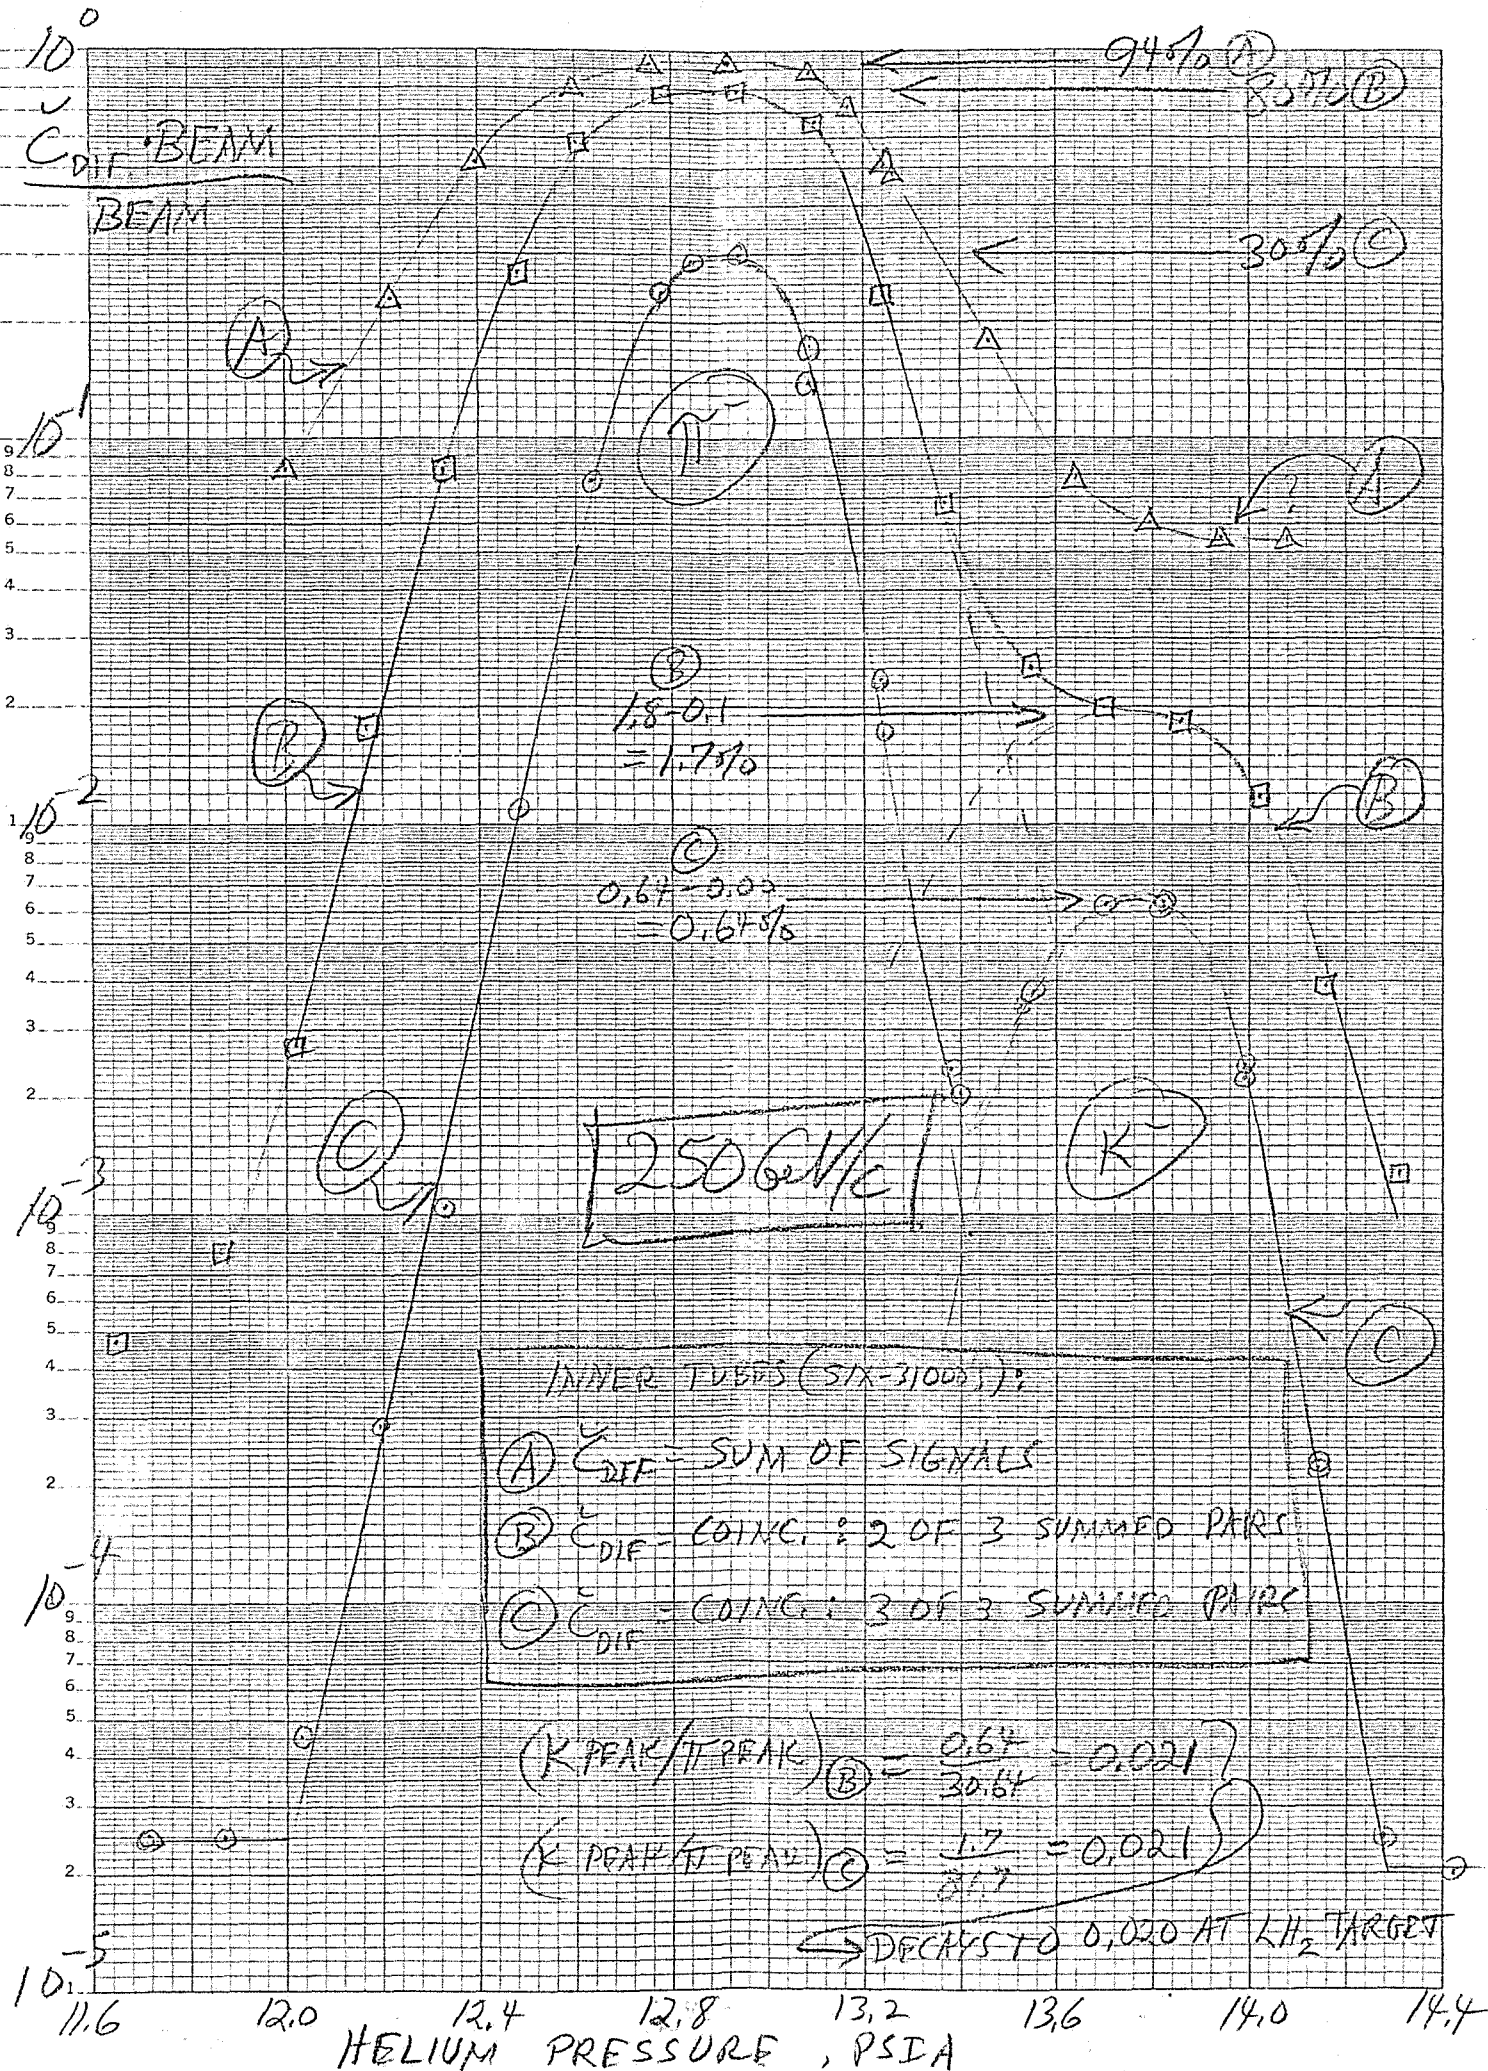 10⁰
Č_DIF · BEAM
BEAM
94% Ⓐ
80% Ⓑ
30% Ⓒ
Ⓐ
π⁻
10⁻¹
9
8
7
6
5
4
3
2
? Ⓐ
Ⓑ
1.8-0.1
= 1.7%
Ⓑ
1
10⁻²
9
8
7
6
5
4
3
2
Ⓑ
Ⓒ
0.64-0.00
= 0.64%
Ⓒ
250 GeV/c
K⁻
10⁻³
9
8
7
6
5
4
3
2
Ⓒ
INNER TUBES (SIX-31000s):
Ⓐ Č_DIF = SUM OF SIGNALS
Ⓑ Č_DIF = COINC. : 2 OF 3 SUMMED PAIRS
Ⓒ Č_DIF = COINC. : 3 OF 3 SUMMED PAIRS
10⁻⁴
9
8
7
6
5
4
3
2
(K PEAK/π PEAK)Ⓑ = 0.64/30.64 = 0.021
(K PEAK/π PEAK)Ⓒ = 1.7/81.7 = 0.021
→ DECAYS TO 0.020 AT LH₂ TARGET
10⁻⁵
1
11.6 12.0 12.4 12.8 13.2 13.6 14.0 14.4
HELIUM PRESSURE, PSIA